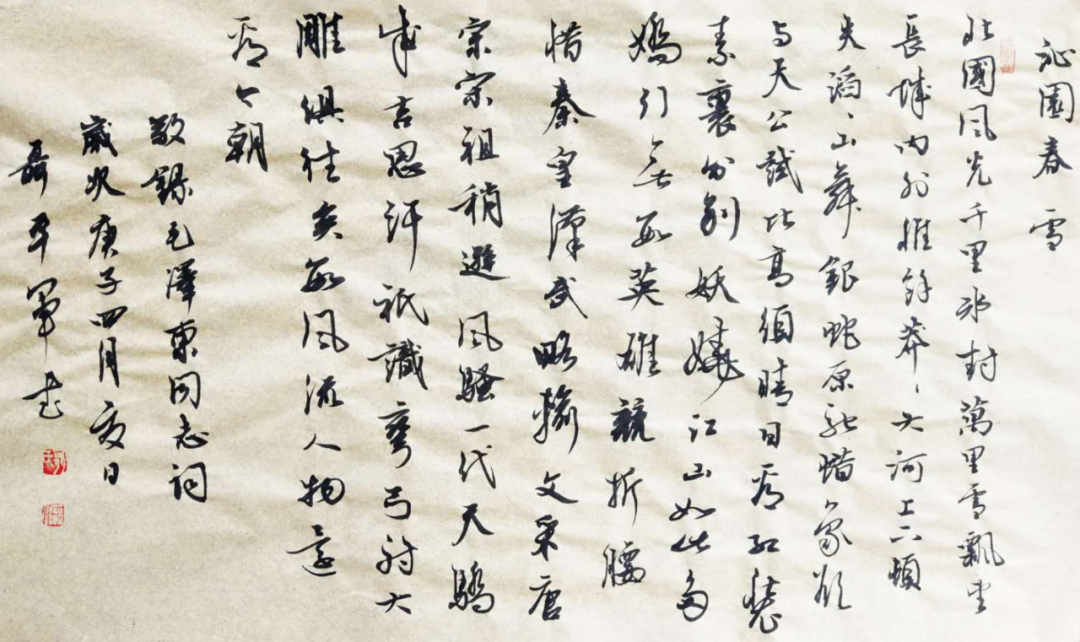 沁園春 雪
北國風光千里冰封萬里雪飄望
長城内外惟餘莽、大河上下頓
失滔、山舞銀蛇原馳蜡象欲
与天公試比高須晴日看紅裝
素裹分外妖嬈江山如此多
嬌引無數英雄競折腰
惜秦皇漢武略輸文采唐
宗宋祖稍遜風騷一代天驕
成吉思汗祇識彎弓射大
雕俱往矣數風流人物還
看今朝
敬錄毛澤東同志詞
歲次庚子四月夏日
聶平軍書